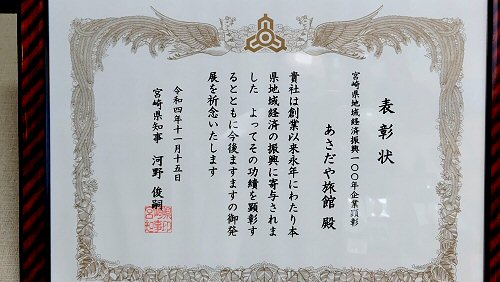 表彰状
宮崎県地域経済振興一〇〇年企業顕彰
あさだや旅館 殿
貴社は創業以来永年にわたり本
県地域経済の振興に寄与されま
した よってその功績を顕彰す
るとともに今後ますますの御発
展を祈念いたします
令和四年十一月十五日
宮崎県知事 河野 俊嗣